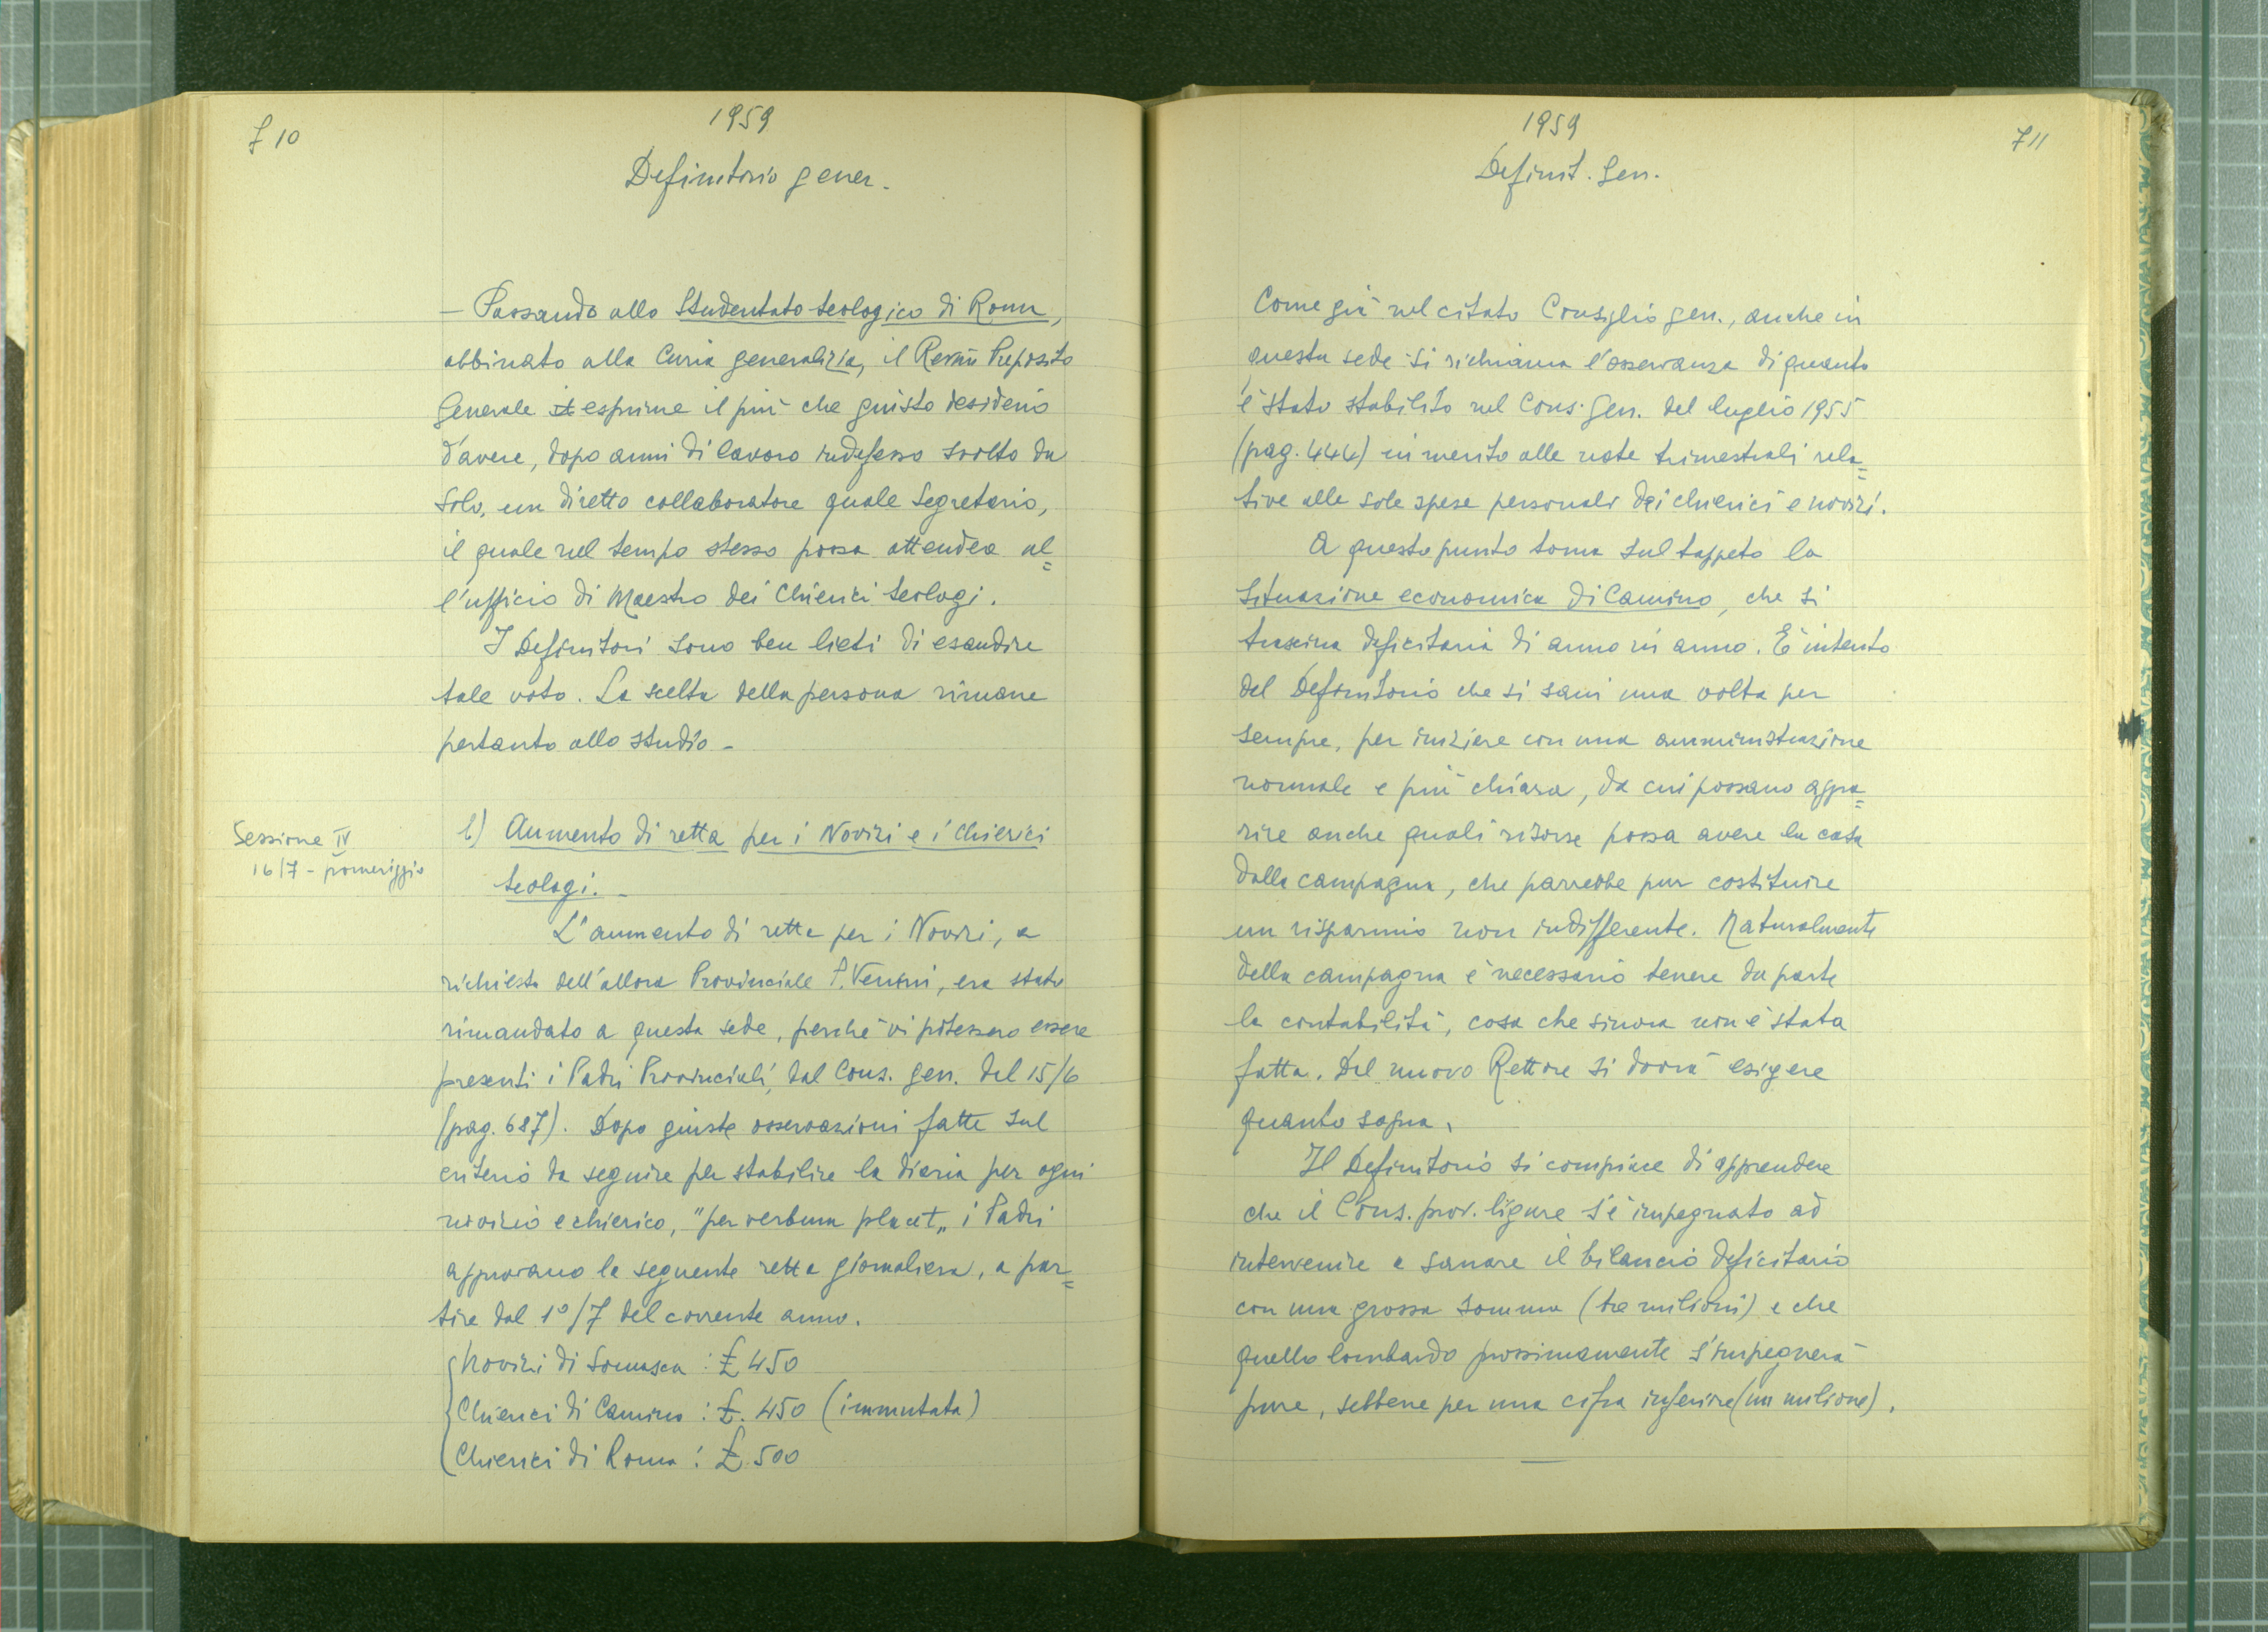 710
1959
Definitorio gener.
– Passando allo Studentato teologico di Roma,
abbinato alla Curia generalizia, il Rev.mo Preposito
Generale esprime il più che giusto desiderio
d'avere, dopo anni di lavoro indefesso svolto da
solo, un diretto collaboratore quale Segretario,
il quale nel tempo stesso possa attendere al=
l'ufficio di Maestro dei Chierici teologi.
I Definitori sono ben lieti di esaudire
tale voto. La scelta della persona rimane
pertanto allo studio –
Sessione IV
16/7 - pomeriggio
b) Aumento di retta per i Novizi e i Chierici
teologi. –
L'aumento di retta per i Novizi, a
richiesta dell'allora Provinciale P. Venini, era stato
rimandato a questa sede, perchè vi potessero essere
presenti i Padri Provinciali, dal Cons. gen. del 15/6
(pag. 687). Dopo giuste osservazioni fatte sul
criterio da seguire per stabilire la diaria per ogni
novizio e chierico, "per verbum placet„ i Padri
approvano la seguente retta giornaliera, a par=
tire dal 1°/7 del corrente anno.
Novizi di Somasca : £ 450
Chierici di Camino : £. 450 (immutata)
Chierici di Roma : £. 500
1959
711
Definit. Gen.
Come già nel citato Consiglio gen., anche in
questa sede si richiama l'osservanza di quanto
è stato stabilito nel Cons. Gen. del luglio 1955
(pag. 444) in merito alle note trimestrali rela=
tive alle sole spese personali dei chierici e novizi.
A questo punto torna sul tappeto la
situazione economica di Camino, che si
trascina deficitaria di anno in anno. È intento
del Definitorio che si sani una volta per
sempre, per iniziare con una amministrazione
normale e più chiara, da cui possano appa=
rire anche quali risorse possa avere la casa
dalla campagna, che parrebbe pur costituire
un risparmio non indifferente. Naturalmente
della campagna è necessario tenere da parte
la contabilità, cosa che sinora non è stata
fatta. Dal nuovo Rettore si dovrà esigere
quanto sopra.
Il Definitorio si compiace di apprendere
che il Cons. prov. ligure s'è impegnato ad
intervenire a sanare il bilancio deficitario
con una grossa somma (tre milioni) e che
quello lombardo prossimamente s'impegnerà
pure, sebbene per una cifra inferiore (un milione).